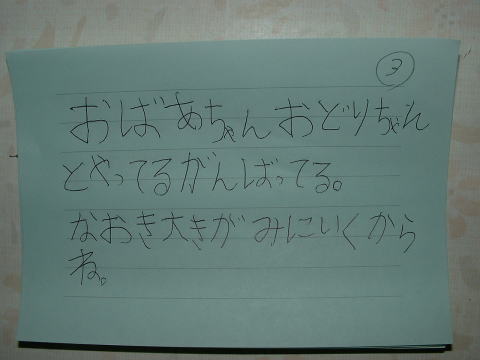 3
おばあちゃんおどりちゃん
とやってるがんばってる。
なおき大きがみにいくから
ね。